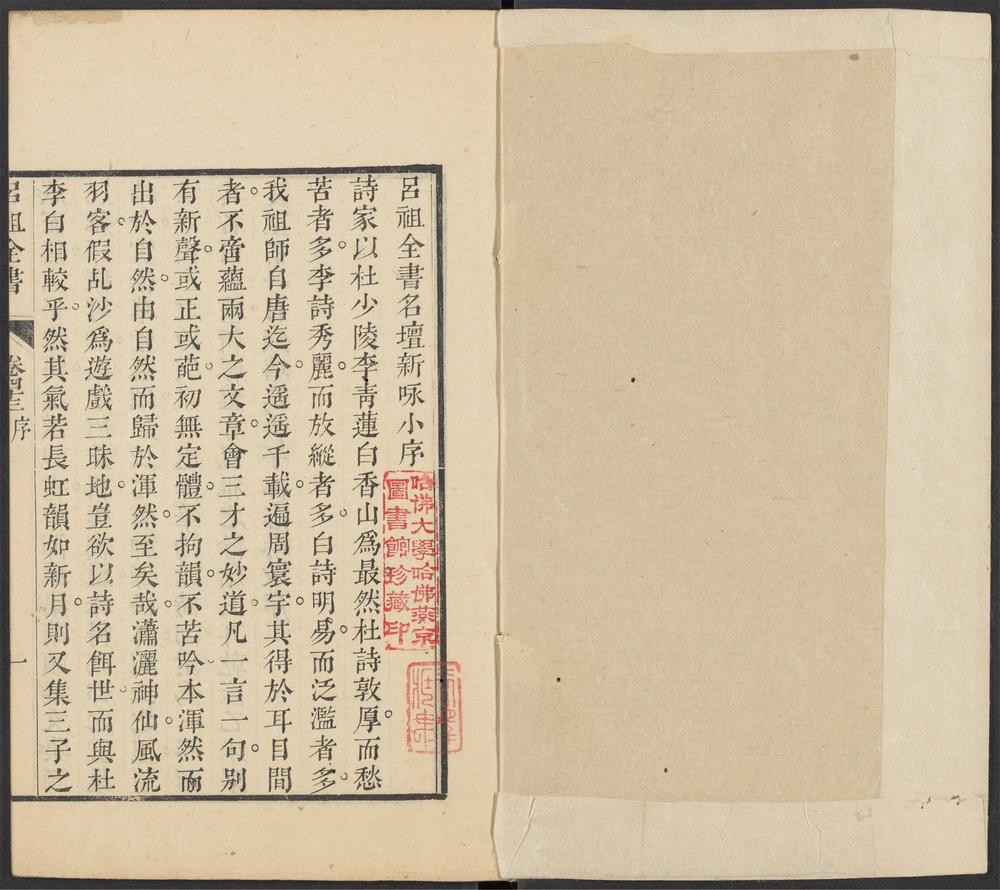 呂祖全書名壇新咏小序
詩家以杜少陵李靑蓮白香山爲最然杜詩敦厚而愁
苦者多李詩秀麗而放縱者多白詩明易而泛濫者多
我祖師自唐迄今遥遥千載遍周寰宇其得於耳目間
者不啻蘊兩大之文章會三才之妙道凡一言一句别
有新聲或正或葩初無定體不拘韻不苦吟本渾然而
出於自然由自然而歸於渾然至矣哉瀟灑神仙風流
羽客假乩沙爲遊戲三昧地豈欲以詩名餌世而與杜
李白相較乎然其氣若長虹韻如新月則又集三子之
呂祖全書
卷四十三序
一
哈佛大學哈佛燕京
圖書館珍藏印